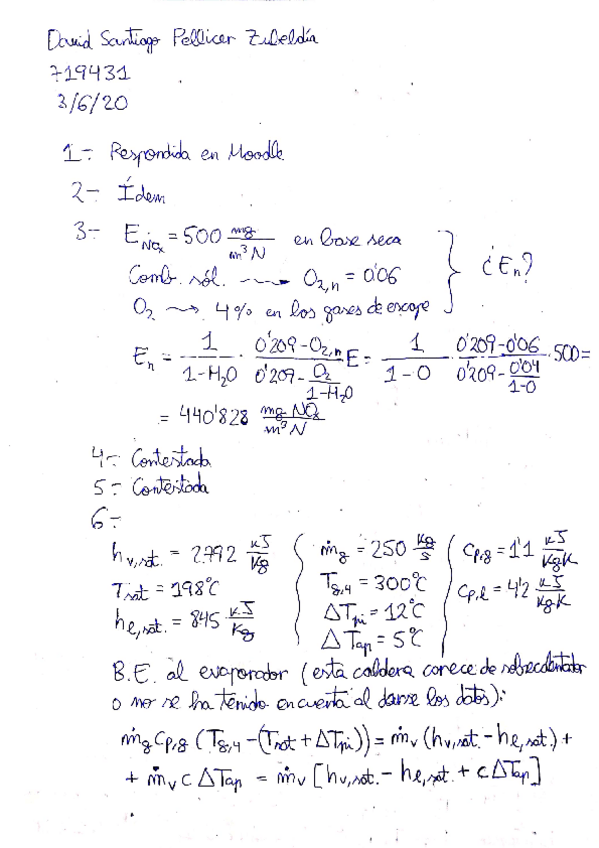 David Santiago Pellicer Zubeldía
719431
3/6/20
1- Respondida en Moodle
2- Ídem
3- E_NOx = 500 mg/m³N en base seca
Comb. sól. ----→ O₂,n = 0'06
O₂ ~→ 4% en los gases de escape
¿En?
En = 1/(1-H₂O) · (0'209-O₂,n)/(0'209-O₂/(1-H₂O)) E = 1/(1-0) · (0'209-0'06)/(0'209-0'04/(1-0)) · 500 =
= 440'828 mg NOx/m³N
4- Contestada
5- Contestada
6-
hv,sat. = 2792 kJ/kg
Tsat = 198°C
he,sat. = 845 kJ/kg
ṁg = 250 kg/s
Tg,4 = 300°C
ΔTpi = 12°C
ΔTap = 5°C
Cp,g = 1'1 kJ/kgK
Cp,l = 4'2 kJ/kgK
B.E. al evaporador (esta caldera carece de sobrecalentador
o no se ha tenido en cuenta al darse los datos):
ṁg Cp,g (Tg,4-(Tsat+ΔTpi)) = ṁv (hv,sat.-he,sat.) +
+ ṁv c ΔTap = ṁv [hv,sat.-he,sat. + cΔTap]